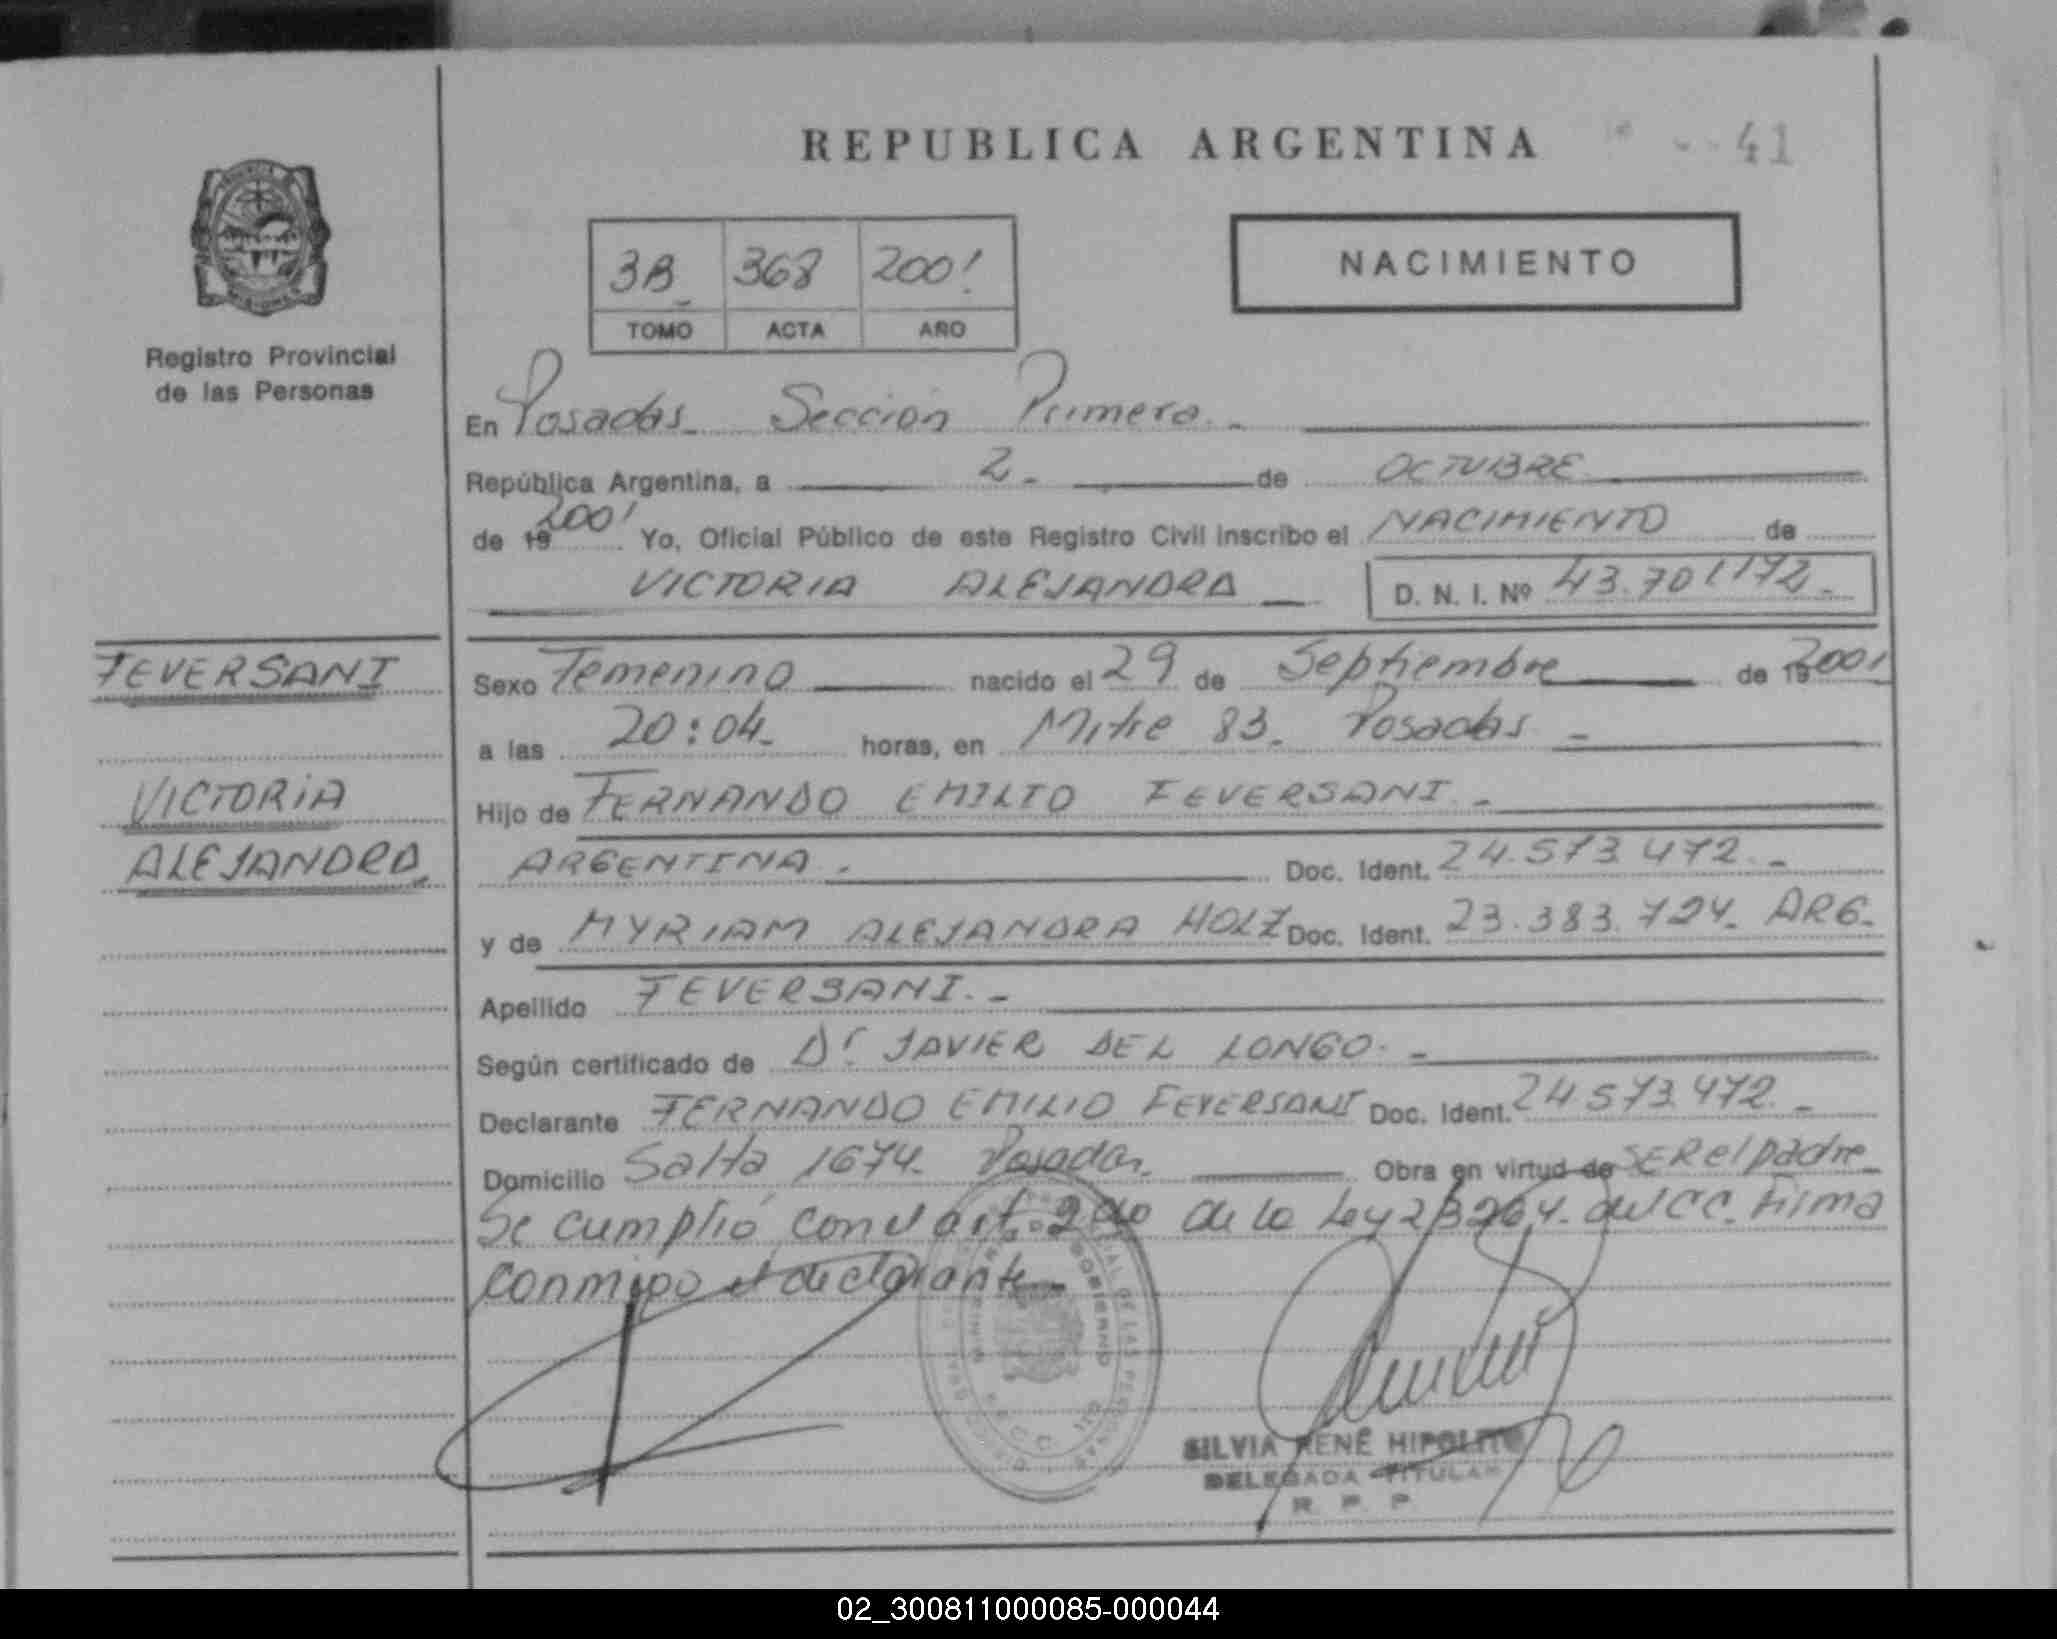 REPUBLICA ARGENTINA
41
3B 368 2001
TOMO ACTA AÑO
NACIMIENTO
Registro Provincial
de las Personas
En Posadas Sección Primera.-
República Argentina, a 2.- de OCTUBRE
de 19 2001 Yo, Oficial Público de este Registro Civil inscribo el NACIMIENTO de
VICTORIA ALEJANDRA D. N. I. Nº 43.701172.-
FEVERSANI
VICTORIA
ALEJANDRA.
Sexo Femenino nacido el 29 de Septiembre de 19 2001
a las 20:04.- horas, en Mitre 83. Posadas -
Hijo de FERNANDO EMILIO FEVERSANI.-
ARGENTINA.- Doc. Ident. 24.573.472.-
y de MYRIAM ALEJANDRA HOLZ Doc. Ident. 23.383.724. ARG.
Apellido FEVERSANI.-
Según certificado de Dr JAVIER DEL LONGO.-
Declarante FERNANDO EMILIO FEVERSANI Doc. Ident. 24573.472.-
Domicilio Salta 1674. Posadas. Obra en virtud de SER el padre
Se cumplió con el art. 2do de la Ley 23264. del CC. Firma
conmigo el declarante.-
GOBIERNO
SILVIA RENÉ HIPOLITO
DELEGADA TITULAR
R. P. P.
02_300811000085-000044